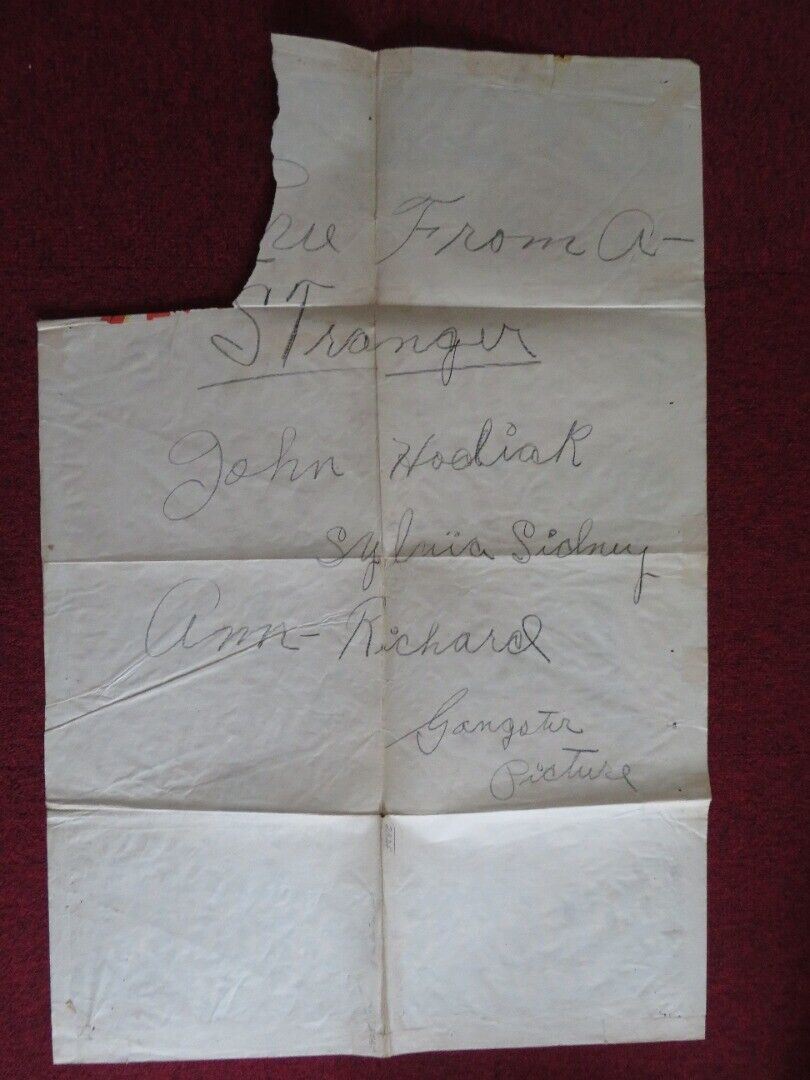 From A-
STranger
John Hodiak
Sylvia Sidney
Ann- Richard
Gangster
Picture